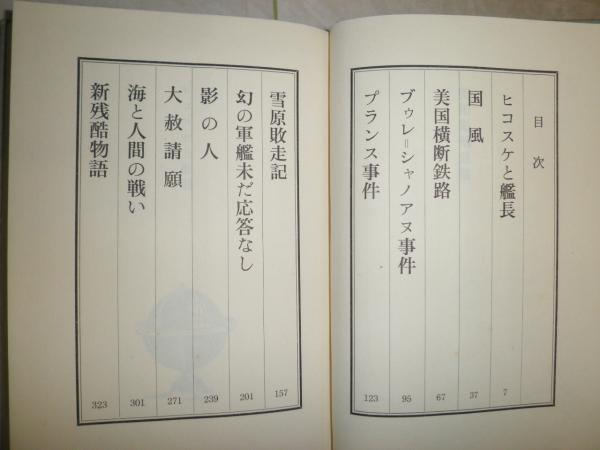 目次
ヒコスケと艦長 7
国風 37
美国横断鉄路 67
ブゥレ=シャノアヌ事件 95
プランス事件 123
雪原敗走記 157
幻の軍艦未だ応答なし 201
影の人 239
大赦請願 271
海と人間の戦い 301
新残酷物語 323